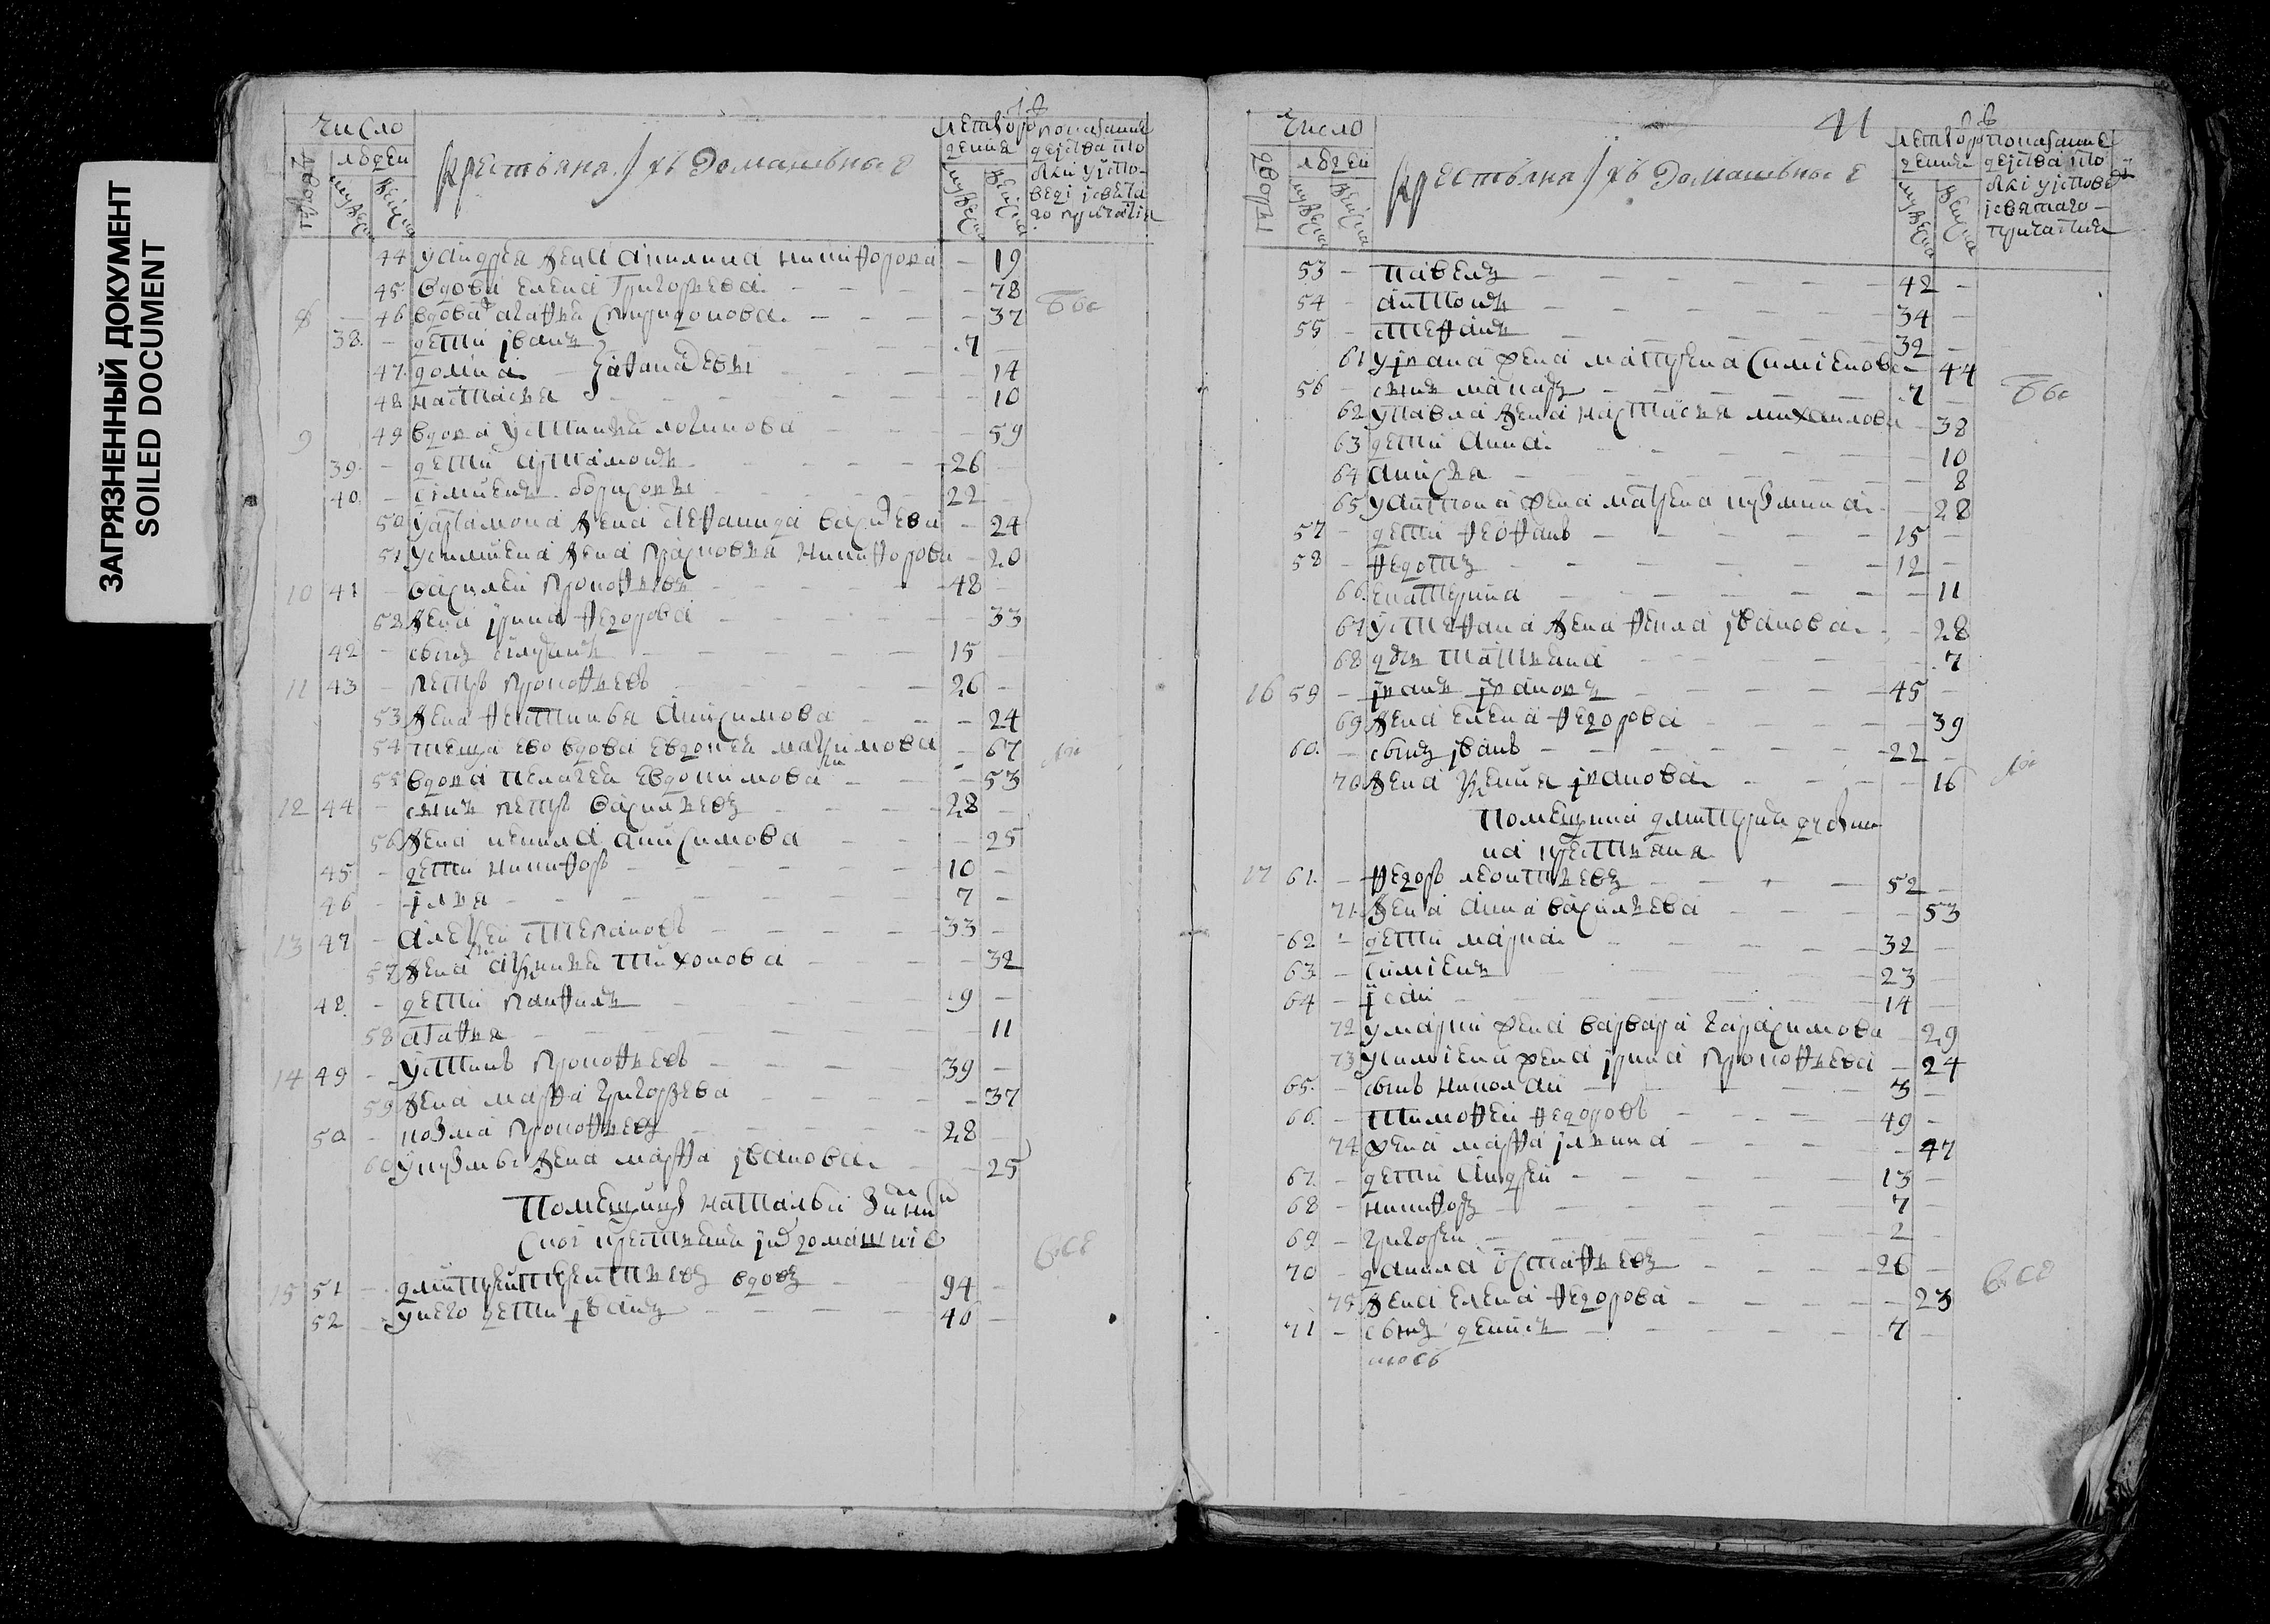 ЗАГРЯЗНЕННЫЙ ДОКУМЕНТ
SOILED DOCUMENT
число
дворы
людей
мужеска
женска
крестьяня ихъ Домашьные
лет отро
дения
мужеска
женска
показание
44 уандрея жена акилина никифорова — 19
45 вдова елена григорьева — 78
8 — 46 вдова агафья спиридонова — 37
38 — дети иванъ — 7
47 домна — 14
48 настасья — 10
9 49 вдова устинья логинова — 59
39 — дети артамонъ — 26
40 — симионъ борисовы 22 —
50 уартамона жена стефанида васильева — 24
51 усимиена жена прасковья никифорова — 20
10 41 — василей прокофьевъ — 48 —
52 жена ирина федорова — 33
42 — сынъ 15 —
11 43 — петръ прокофьевъ — 26 —
53 жена фетинья анисимова — 24
54 теща ево вдова евдокея максимова — 67
55 вдова пелагея евдокимова — 53
12 44 — сынъ петръ васильевъ — 28 —
56 жена анисимова — 25
45 — дети никифоръ — 10 —
46 — илья — 7 —
13 47 — алексей степановъ — 33 —
57 жена тихонова — 32
48 — дети панфилъ — 9 —
58 агафья — 11
14 49 — устинъ прокофьевъ — 39 —
59 жена марфа григорьева — 37
50 — козма прокофьевъ — 28 —
60 укузмы жена марфа иванова — 25
Помещицы натальи
крестьяня
все
15 51 — дмитрей вдовъ — 94 —
52 — унего дети иванъ — 40 —
41
число
дворы
людей
мужеска
женска
крестьяня ихъ Домашьные
лет отро
дения
мужеска
женска
показание
53 — павелъ — 42 —
54 — антонъ — 34 —
55 — стефанъ — 32 —
61 уивана жена матрена симионова — 44
56 — сынъ 7 —
62 упавла жена настасья михаилова — 38
63 дети анна — 10
64 анисья — 8
65 уантона жена матрена кузмина — 28
57 — дети феофанъ — 15 —
58 — федотъ — 12 —
66 екатерина — 11
67 устефана жена фекла иванова — 28
68 дочь татьяна — 7
16 59 — иванъ ивановъ — 45 —
69 жена елена федорова — 39
60 — сынъ иванъ — 22 —
70 жена ксения иванова — 16
Помещика дмитрия
крестьяня
17 61 — федоръ леонтьевъ — 52 —
71 жена анна васильева — 53
62 — дети марка — 32 —
63 — симионъ 23 —
64 — исаи — 14 —
72 умарки жена варвара гарасимова — 29
73 усимиена жена ирина прокофьева — 24
65 — сынъ николай — 3 —
66 — тимофей федоровъ — 49 —
74 жена марфа ильина — 47
67 — дети андрей — 13 —
68 — никифоръ — 7 —
69 — григорей — 2 —
70 — данила остафьевъ — 26 —
75 жена елена федорова — 23
все
71 — сынъ денисъ — 7 —